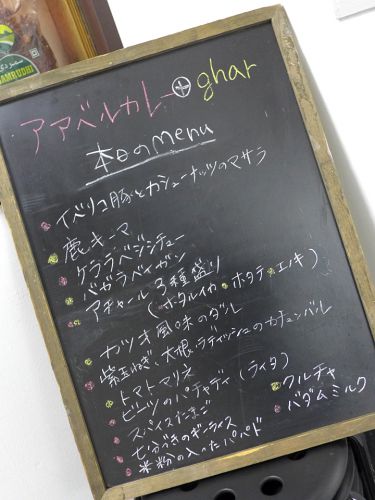 SAMRUDHI
アアベルカレー + ghar
本日のmenu
イベリコ豚とカシューナッツのマサラ
鹿キーマ
ケララベジシチュー
バガラベイガン
アチャール3種盛り
(ホタルイカ・ホタテ・エノキ)
カツオ風味のダル
紫玉ねぎ、大根、ラディッシュのカチュンバル
トマトマリネ
ビーツのパチャディ(ライタ)
スパイスたまご
七分づきのギーライス
米粉の入ったパパド
クルチャ
バダムミルク